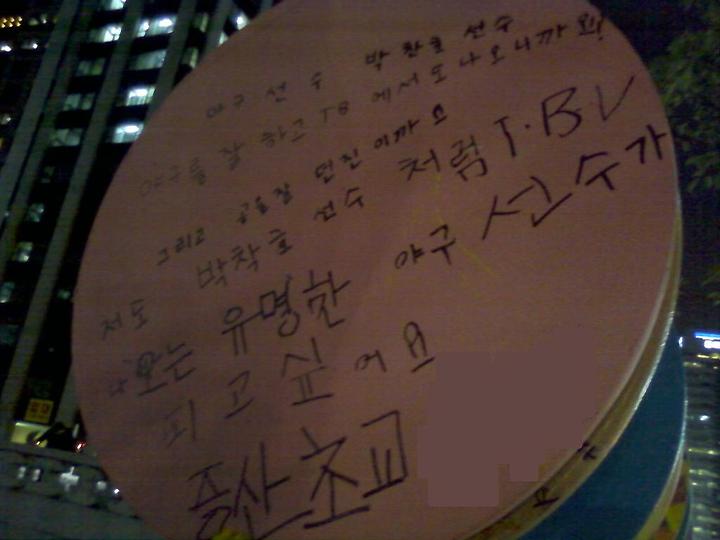 야구 선수 박찬호 선수
야구를 잘 하고 TB 에서도 나오니까 요!
그리고 공을 잘 던진이까요
저도 박착호 선수 처럼 T.B.V
나오는 유명한 야구 선수가
피고 싶어요
증산초교